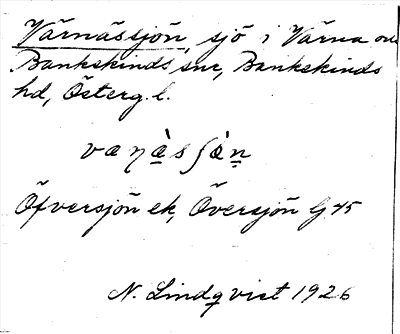 Värnässjön, sjö i Värna och
Bankekinds snr, Bankekinds
hd, Österg. l.
Öfversjön ek, Översjön G 45
N. Lindqvist 1926